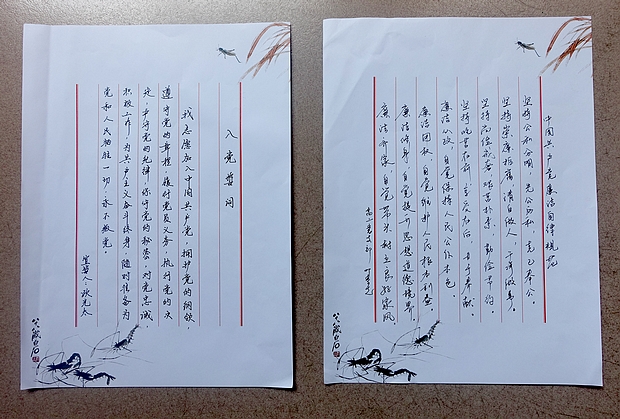 入党誓词
我志愿加入中国共产党，拥护党的纲领，
遵守党的章程，履行党员义务，执行党的决
定，严守党的纪律，保守党的秘密，对党忠诚，
积极工作，为共产主义奋斗终身，随时准备为
党和人民牺牲一切，永不叛党。
宣誓人：
白石
中国共产党廉洁自律规范
坚持公私分明，先公后私，克己奉公。
坚持崇廉拒腐，清白做人，干净做事。
坚持尚俭戒奢，艰苦朴素，勤俭节约。
坚持吃苦在前，享受在后，甘于奉献。
廉洁从政，自觉保持人民公仆本色。
廉洁用权，自觉维护人民根本利益。
廉洁修身，自觉提升思想道德境界。
廉洁齐家，自觉带头树立良好家风。
白石